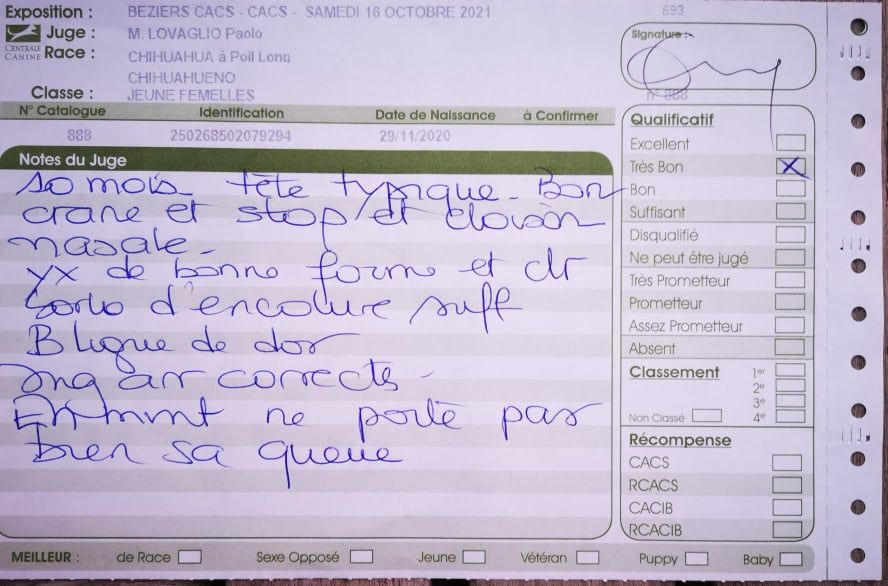 Exposition : BEZIERS CACS - CACS - SAMEDI 16 OCTOBRE 2021 693
Juge : M. LOVAGLIO Paolo
CENTRALE CANINE
Race : CHIHUAHUA à Poil Long
CHIHUAHUENO
Classe : JEUNE FEMELLES
Signature :
n° 888
N° Catalogue Identification Date de Naissance à Confirmer
888 250268502079294 29/11/2020
Notes du Juge
10 mois tête typique. Bon
crane et stop et cloison
nasale -
yx de bonne forme et clr
Sortie d'encolure suff
B ligne de dos
Ang arr corrects -
En mvmt ne porte pas
bien sa queue
Qualificatif
Excellent
Très Bon X
Bon
Suffisant
Disqualifié
Ne peut être jugé
Très Prometteur
Prometteur
Assez Prometteur
Absent
Classement 1er
2e
3e
Non Classé 4e
Récompense
CACS
RCACS
CACIB
RCACIB
MEILLEUR : de Race Sexe Opposé Jeune Vétéran Puppy Baby